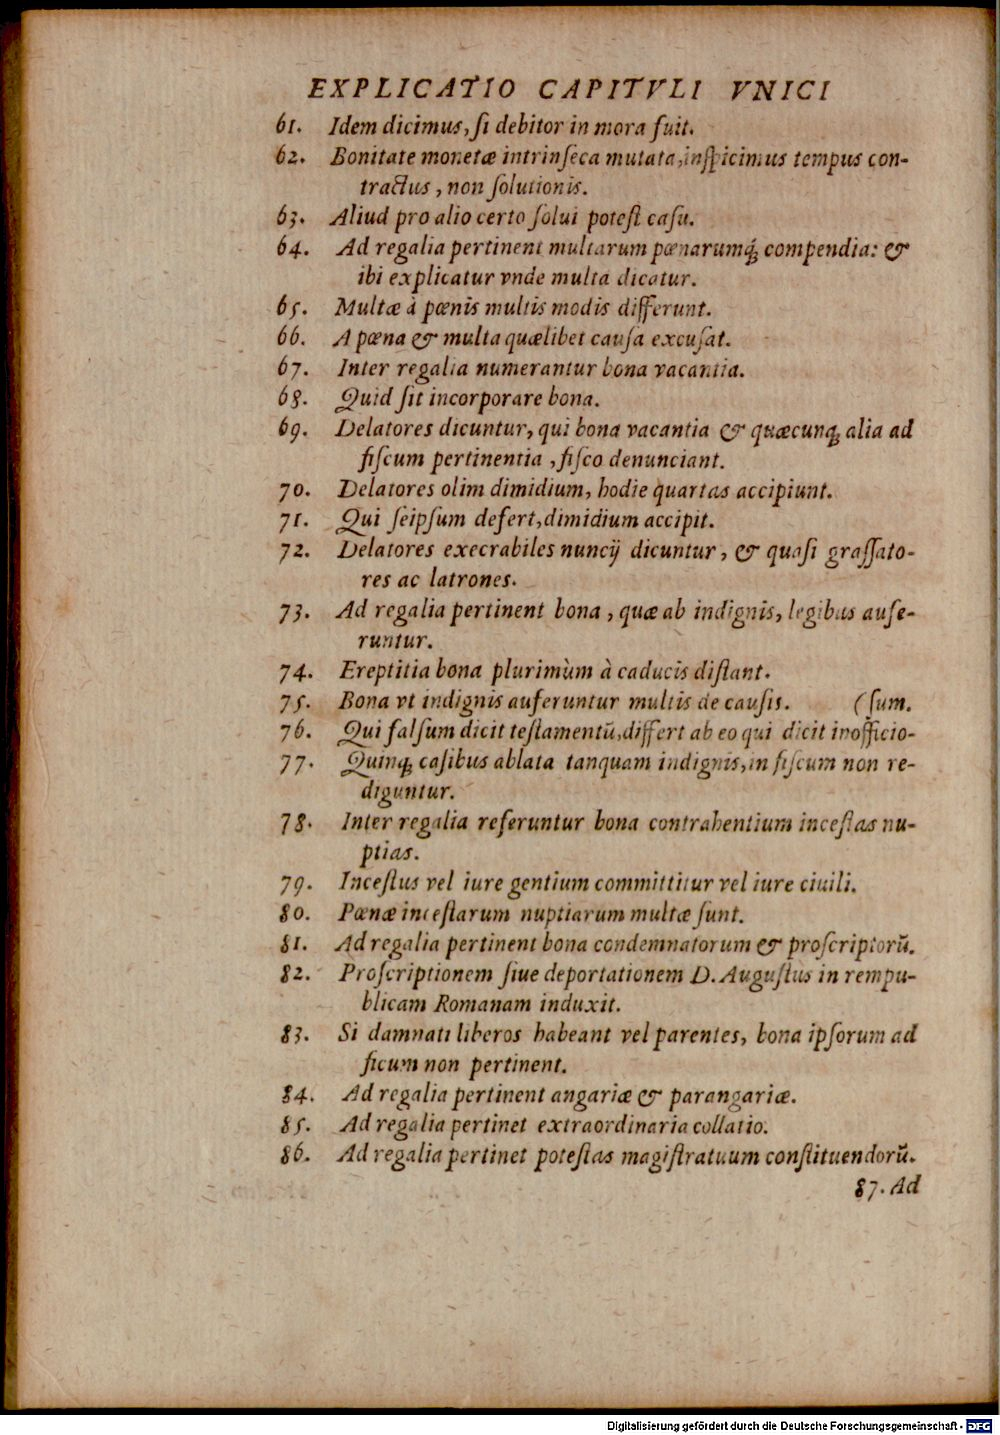 EXPLICATIO CAPITVLI VNICI
61. Idem dicimus, ſi debitor in mora fuit.
62. Bonitate monetæ intrinſeca mutata, inſpicimus tempus con-
tractus, non ſolutionis.
63. Aliud pro alio certo ſolui poteſt caſu.
64. Ad regalia pertinent multarum pœnarumq́; compendia: &
ibi explicatur vnde multa dicatur.
65. Multæ à pœnis multis modis differunt.
66. A pœna & multa quælibet cauſa excuſat.
67. Inter regalia numerantur bona vacantia.
68. Quid ſit incorporare bona.
69. Delatores dicuntur, qui bona vacantia & quæcunq; alia ad
fiſcum pertinentia, fiſco denunciant.
70. Delatores olim dimidium, hodie quartas accipiunt.
71. Qui ſeipſum defert, dimidium accipit.
72. Delatores execrabiles nuncij dicuntur, & quaſi graſſato-
res ac latrones.
73. Ad regalia pertinent bona, quæ ab indignis, legibus aufe-
runtur.
74. Ereptitia bona plurimùm à caducis diſtant.
75. Bona vt indignis auferuntur multis de cauſis. (ſum.
76. Qui falſum dicit teſtamentũ, differt ab eo qui dicit inofficio-
77. Quinq; caſibus ablata tanquam indignis, in fiſcum non re-
diguntur.
78. Inter regalia referuntur bona contrahentium inceſtas nu-
ptias.
79. Inceſtus vel iure gentium committitur vel iure ciuili.
80. Pœnæ inceſtarum nuptiarum multæ ſunt.
81. Ad regalia pertinent bona condemnatorum & proſcriptorũ.
82. Proſcriptionem ſiue deportationem D. Auguſtus in rempu-
blicam Romanam induxit.
83. Si damnati liberos habeant vel parentes, bona ipſorum ad
ficum non pertinent.
84. Ad regalia pertinent angariæ & parangariæ.
85. Ad regalia pertinet extraordinaria collatio.
86. Ad regalia pertinet poteſtas magiſtratuum conſtituendorũ.
87. Ad
Digitalisierung gefördert durch die Deutsche Forschungsgemeinschaft - DFG